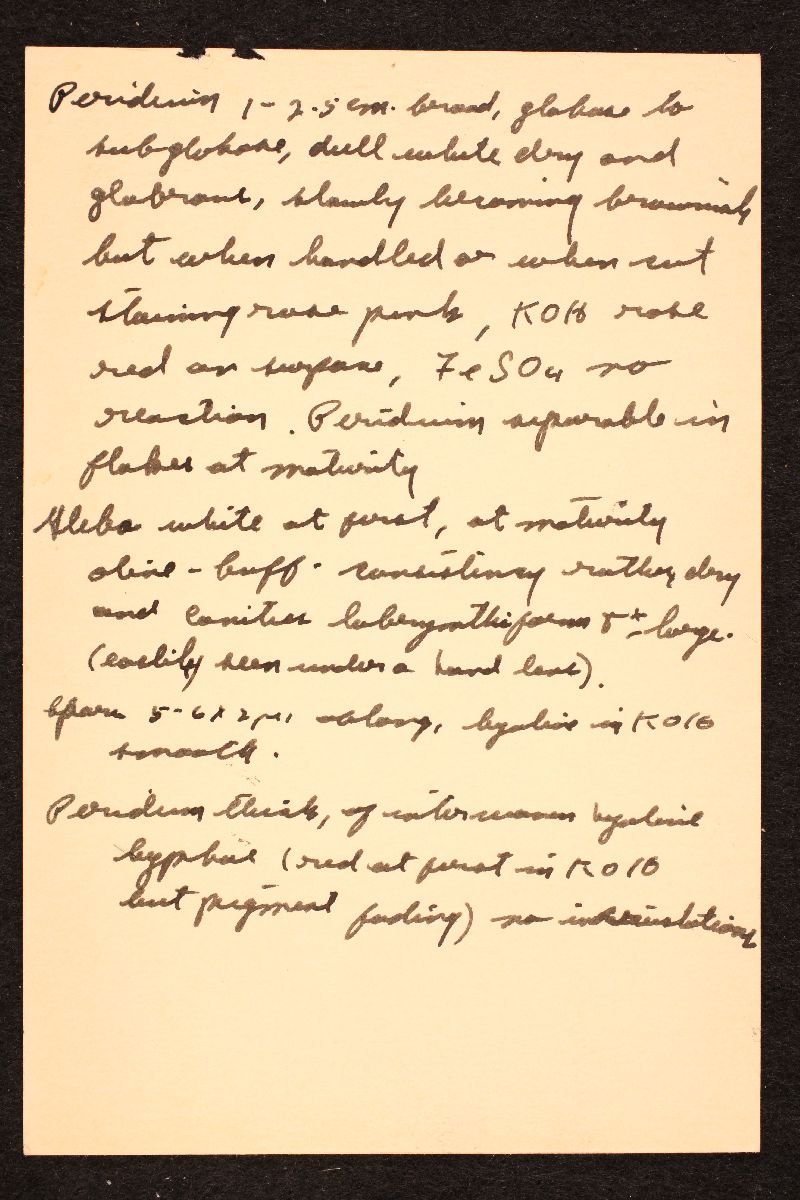 Peridium 1-2.5 cm. broad, globose to
subglobose, dull white dry and
glabrous, slowly becoming brownish
but when handled or when cut
staining rose pink, KOH rose
red on surface, FeSO4 no
reaction. Peridium separable in
flakes at maturity
Gleba white at first, at maturity
olive-buff. consistency rather dry
and cavities labyrinthiform ± large.
(easily seen under a hand lens).
Spores 5-6 x 2 µ, oblong, hyaline in KOH
smooth.
Peridium thick, of interwoven hyaline
hyphae (red at first in KOH
but pigment fading) no incrustations